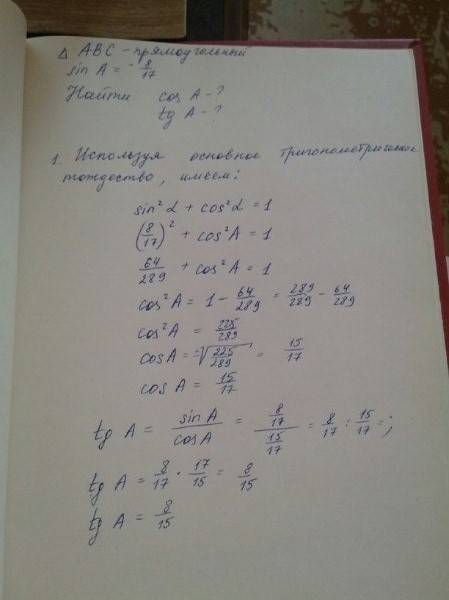 Δ ABC - прямоугольный
sin A = - 8/17
Найти cos A - ?
tg A - ?
1. Используя основное тригонометрическое
тождество, имеем:
sin² α + cos² α = 1
(8/17)² + cos² A = 1
64/289 + cos² A = 1
cos² A = 1 - 64/289 = 289/289 - 64/289
cos² A = 225/289
cos A = √225/289 = 15/17
cos A = 15/17
tg A = sin A / cos A = 8/17 / 15/17 = 8/17 : 15/17 = ;
tg A = 8/17 · 17/15 = 8/15
tg A = 8/15